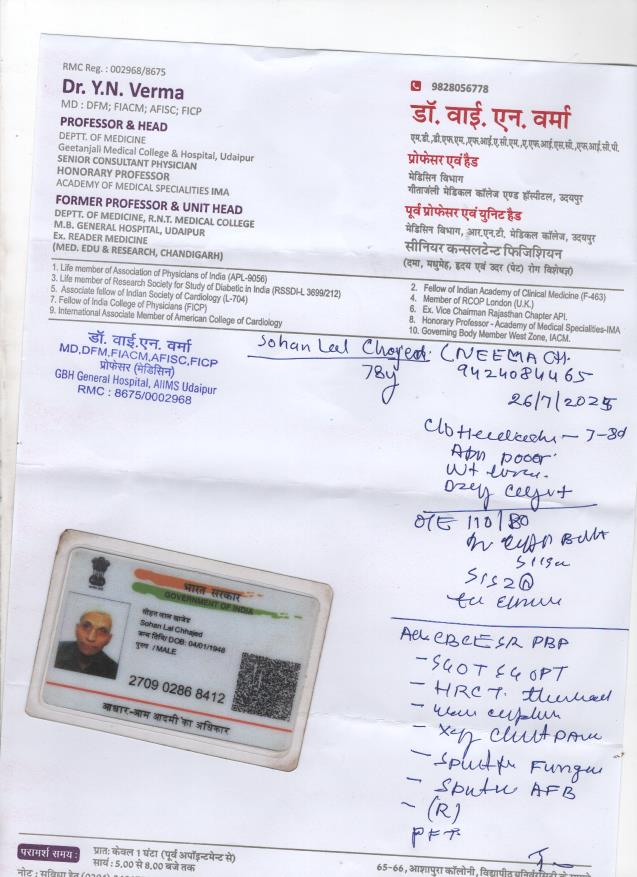 RMC Reg. : 002968/8675
Dr. Y.N. Verma
MD : DFM; FIACM; AFISC; FICP
PROFESSOR & HEAD
DEPTT. OF MEDICINE
Geetanjali Medical College & Hospital, Udaipur
SENIOR CONSULTANT PHYSICIAN
HONORARY PROFESSOR
ACADEMY OF MEDICAL SPECIALITIES IMA
FORMER PROFESSOR & UNIT HEAD
DEPTT. OF MEDICINE, R.N.T. MEDICAL COLLEGE
M.B. GENERAL HOSPITAL, UDAIPUR
Ex. READER MEDICINE
(MED. EDU & RESEARCH, CHANDIGARH)
9828056778
डॉ. वाई. एन. वर्मा
एम.डी.,डी.एफ.एम.,एफ.आई.ए.सी.एम.,ए.एफ.आई.एस.सी.,एफ.आई.सी.पी.
प्रोफेसर एवं हैड
मेडिसिन विभाग
गीतांजली मेडिकल कॉलेज एण्ड हॉस्पीटल, उदयपुर
पूर्व प्रोफेसर एवं युनिट हैड
मेडिसिन विभाग, आर.एन.टी. मेडिकल कॉलेज, उदयपुर
सीनियर कन्सलटेन्ट फिजिशियन
(दमा, मधुमेह, हृदय एवं उदर (पेट) रोग विशेषज्ञ)
1. Life member of Association of Physicians of India (APL-9056)
3. Life member of Research Society for Study of Diabetic in India (RSSDI-L 3699/212)
5. Associate fellow of Indian Society of Cardiology (L-704)
7. Fellow of India College of Physicians (FICP)
9. International Associate Member of American College of Cardiology
2. Fellow of Indian Academy of Clinical Medicine (F-463)
4. Member of RCOP London (U.K.)
6. Ex. Vice Chairman Rajasthan Chapter API.
8. Honorary Professor - Academy of Medical Specialities-IMA
10. Governing Body Member West Zone, IACM.
डॉ. वाई. एन. वर्मा
MD,DFM,FIACM,AFISC,FICP
प्रोफेसर (मेडिसिन)
GBH General Hospital, AIIMS Udaipur
RMC : 8675/0002968
Sohan Lal (NEEMACH.
78y 9424084465
26/7/2025
C/o - 7-8d
poor
Wt
Dry
O/E 110/80
S1S2 N
Adv CBC ESR PBF
- SGOT SGPT
- HRCT
- X-ray Chest PA
- Sputum Fungus
- Sputum AFB
- (R)
PFT
भारत सरकार
GOVERNMENT OF INDIA
सोहन लाल छाजेड़
Sohan Lal Chhajed
जन्म तिथि/ DOB: 04/01/1948
पुरुष / MALE
2709 0286 8412
आधार-आम आदमी का अधिकार
परामर्श समय :
प्रातः केवल 1 घंटा (पूर्व अपॉइन्टमेन्ट से)
सायं : 5.00 से 8.00 बजे तक
65-66, आशापुरा कॉलोनी,